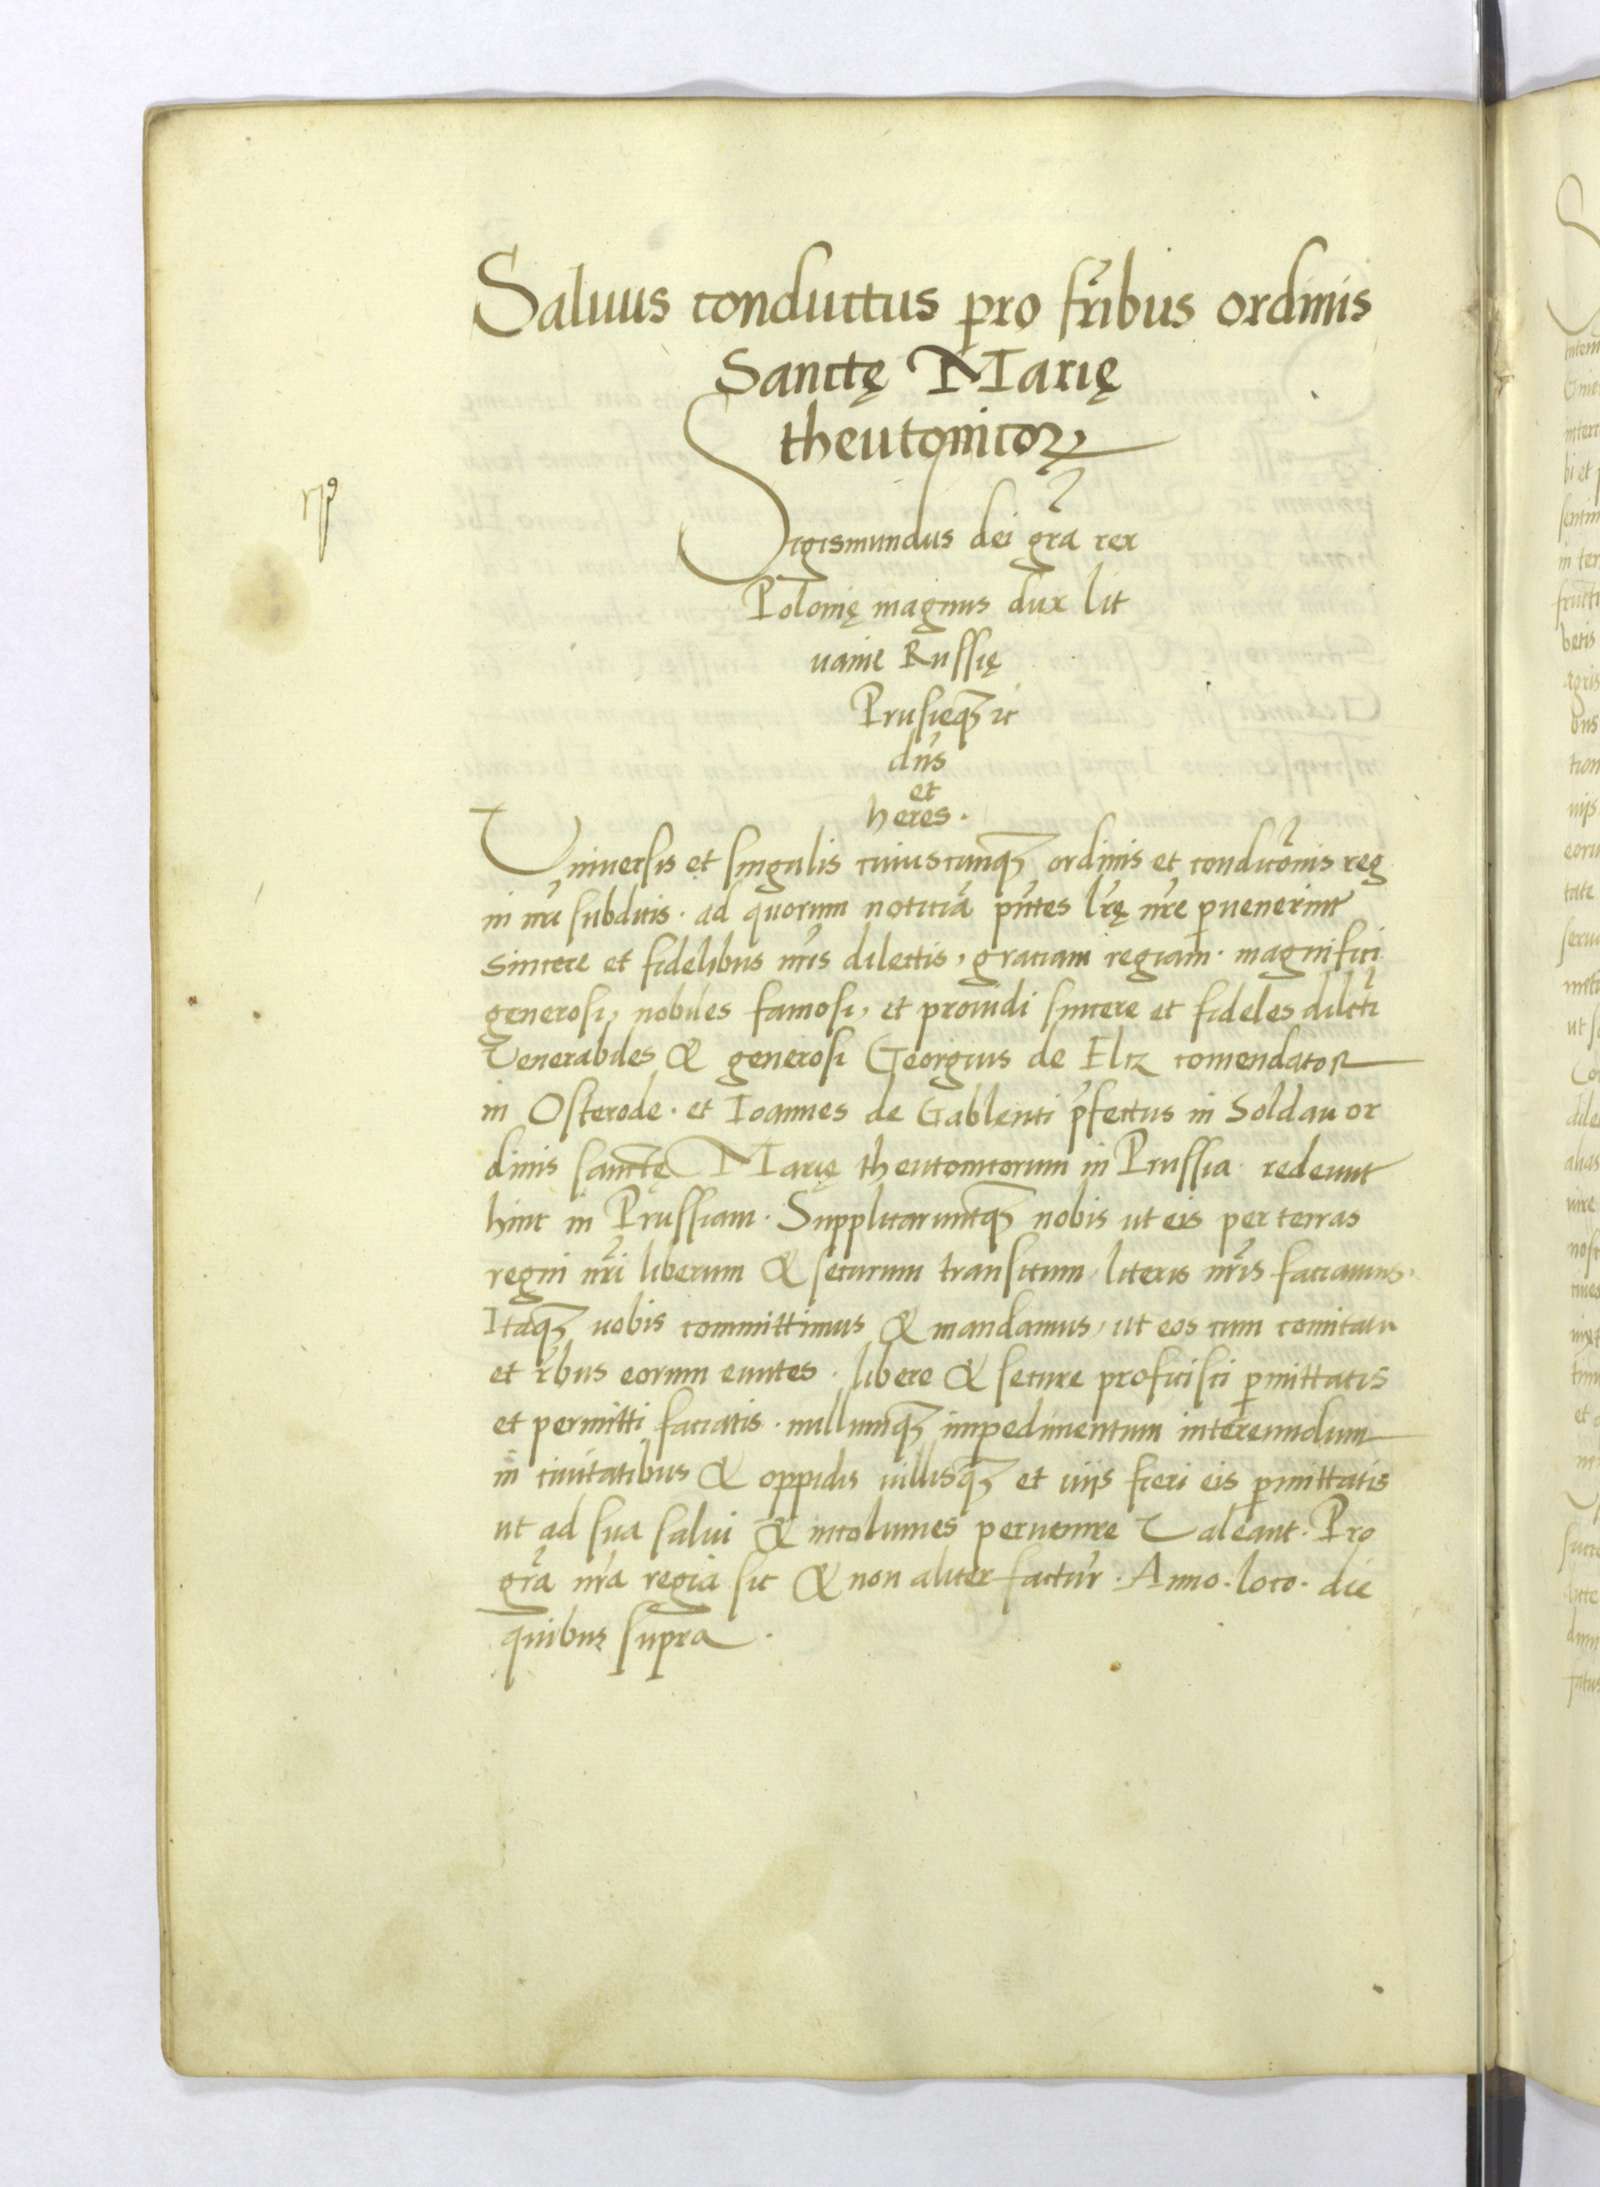 Saluus conductus pro fr̃ibus ordinis
Sanctę Marię
theutonicoꝝ
Sigismundus dei grã rex
Polonię magnus dux lit
uanie Russię
Prusieqꝫ ꝛc
dñs
et
heres.
Uniuersis et singulis cuiuscunqꝫ ordinis et condicõnis reg
ni nr̃i subditis. ad quorum noticiã pñtes lr̃ę nr̃e ꝑuenerint
sincere et fidelibus nr̃is dilectis, graciam regiam. magnifici
generosi, nobiles famosi, et prouidi sincere et fideles dilc̃ti
Venerabiles & generosi Georgius de Eltz comendator
in Osterode. et Ioannes de Gablenti p̃fectus in Soldau or
dinis sanctę Marię theutonicorum in Prussia redeunt
hinc in Prussiam. Supplicaruntqꝫ nobis ut eis per terras
regni nr̃i liberum & securum transitum literis nr̃is faciamus.
Itaqꝫ uobis committimus & mandamus, ut eos cum comitatu
et r̃bus eorum euntes. libere & secure proficisci ꝑmittatis
et permitti faciatis. nullumqꝫ impedimentum intereundum
in ciuitatibus & oppidis uillisqꝫ et uijs fieri eis ꝑmittatis
ut ad sua salui & incolumes peruenire Valeant. Pro
grã nr̃a regia sic & non aliter factur̃. Anno. loco. die
quibus supra.